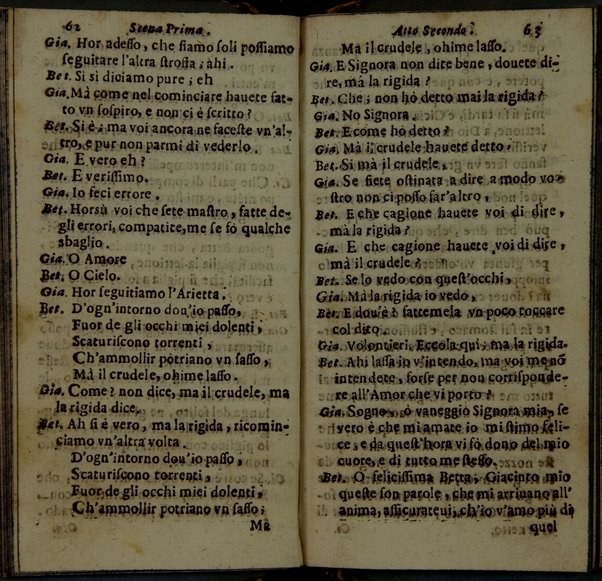 62 Scena Prima.
Gia. Hor adesso, che siamo soli possiamo
seguitare l'altra stroffa; ahi.
Bet. Si si diciamo pure; eh
Gia. Mà come nel cominciare hauete fat-
to vn sospiro, e non ci è scritto?
Bet. Si è; ma voi ancora ne faceste vn'al-
tro, e pur non parmi di vederlo.
Gia. E vero eh?
Bet. E verissimo.
Gia. Io feci errore.
Bet. Horsù voi che sete mastro, fatte de-
gli errori, compatite, me se fò qualche
sbaglio.
Gia. O Amore.
Bet. O Cielo.
Gia. Hor seguitiamo l'Arietta.
Bet. D'ogn'intorno dou'io passo,
Fuor de gli occhi miei dolenti,
Scaturiscono torrenti,
Ch'ammollir potriano vn sasso,
Mà il crudele, ohime lasso.
Gia. Come? non dice, ma il crudele, ma
la rigida dice.
Bet. Ah si è vero, ma la rigida, ricomin-
ciamo vn'altra volta.
D'ogn'intorno dou'io passo,
Scaturiscono torrenti,
Fuor de gli occhi miei dolenti,
Ch'ammollir potriano vn sasso;
Mà
Atto Secondo. 63
Ma il crudele, ohime lasso.
Gia. E Signora non dite bene, douete di-
re, mà la rigida?
Bet. Che; non hò detto mai la rigida?
Gia. No Signora.
Bet. E come hò detto?
Gia. Mà il crudele hauete detto.
Bet. Si mà il crudele.
Gia. Se siete ostinata a dire a modo vo-
stro non ci posso far'altro,
Bet. E che cagione hauete voi di dire,
mà la rigida?
Gia. E che cagione hauete voi di dire,
mà il crudele?
Bet. Se lo vedo con quest'occhi,
Gia. Mà la rigida io vedo,
Bet. E dou'è fattemela vn poco toccare
col dito.
Gia. Volontieri, Eccola qui; ma la rigida.
Bet. Ahi lassa io v'intendo, ma voi me nō
intendete, forse per non corrisponde-
re all'Amor che vi porto?
Gia. Sogno, ò vaneggio Signora mia, se
vero è che mi amate io mi stimo feli-
ce, e da quest'hora vi fò dono del mio
cuore, e di tutto me stesso.
Bet. O felicissima Betta; Giacinto mio
queste son parole, che mi arriuano all'
anima, assicurateui, ch'io v'amo più di
quel